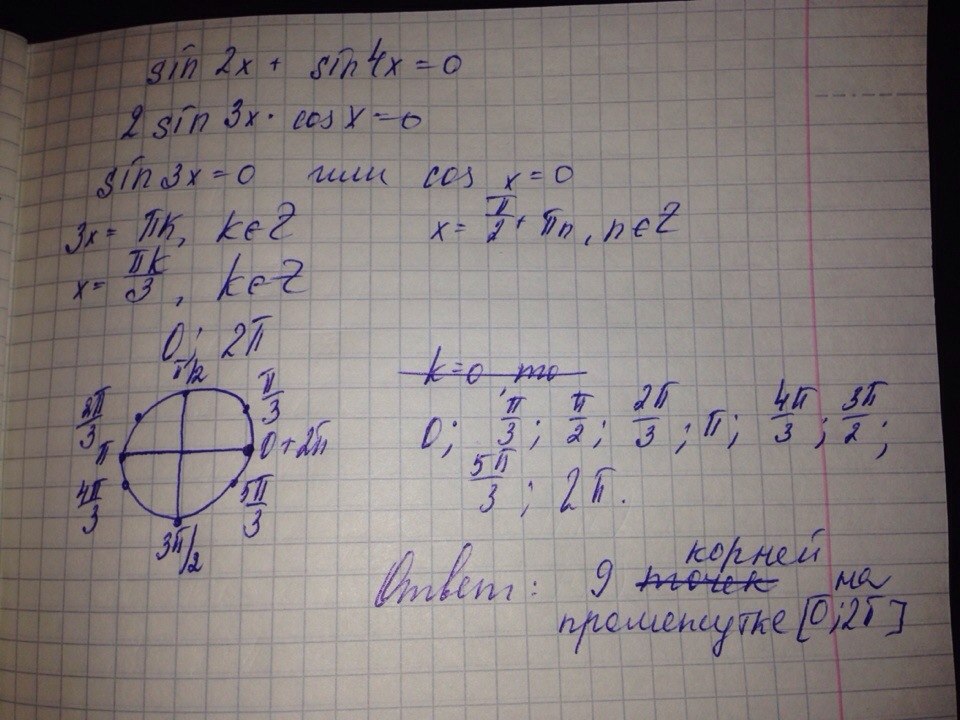 sin 2x + sin 4x = 0
2 sin 3x · cos x = 0
sin 3x = 0 или cos x = 0
3x = πk, k∈Z x = π/2 + πn, n∈Z
x = πk/3, k∈Z
0; 2π
k=0 то
π/2
2π/3 π/3
π 0+2π
4π/3 5π/3
3π/2
0; π/3; π/2; 2π/3; π; 4π/3; 3π/2;
5π/3; 2π.
Ответ: 9 точек корней на
промежутке [0;2π]